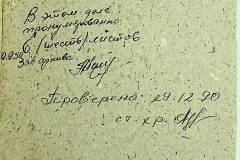 В этом деле
пронумеровано
6 (шесть) листов
Зав архива
Проверено 29.12.90
ст. хр.